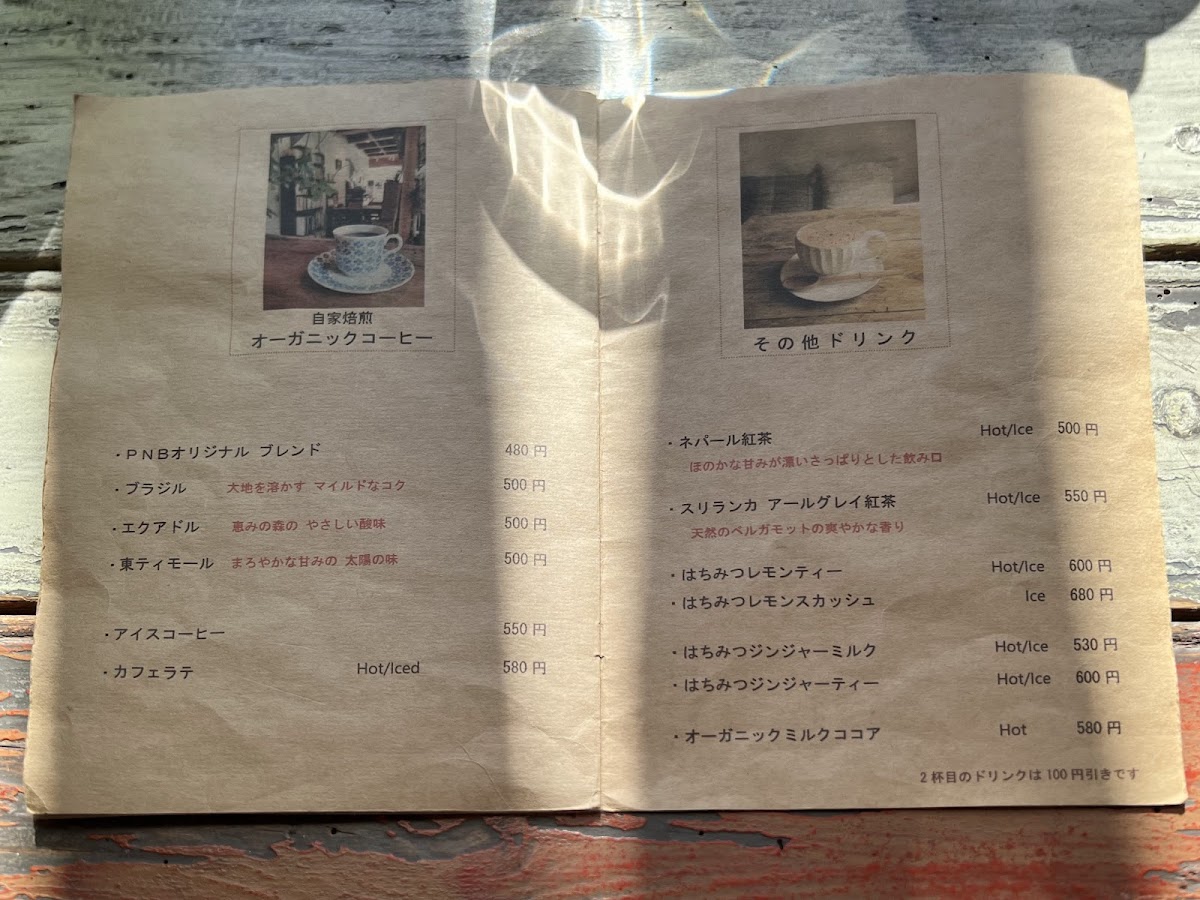 自家焙煎
オーガニックコーヒー
・PNBオリジナル ブレンド 480円
・ブラジル 大地を溶かす マイルドなコク 500円
・エクアドル 恵みの森の やさしい酸味 500円
・東ティモール まろやかな甘みの 太陽の味 500円
・アイスコーヒー 550円
・カフェラテ Hot/Iced 580円
その他ドリンク
・ネパール紅茶 Hot/Ice 500円
ほのかな甘みが漂いさっぱりとした飲み口
・スリランカ アールグレイ紅茶 Hot/Ice 550円
天然のベルガモットの爽やかな香り
・はちみつレモンティー Hot/Ice 600円
・はちみつレモンスカッシュ Ice 680円
・はちみつジンジャーミルク Hot/Ice 530円
・はちみつジンジャーティー Hot/Ice 600円
・オーガニックミルクココア Hot 580円
2杯目のドリンクは100円引きです